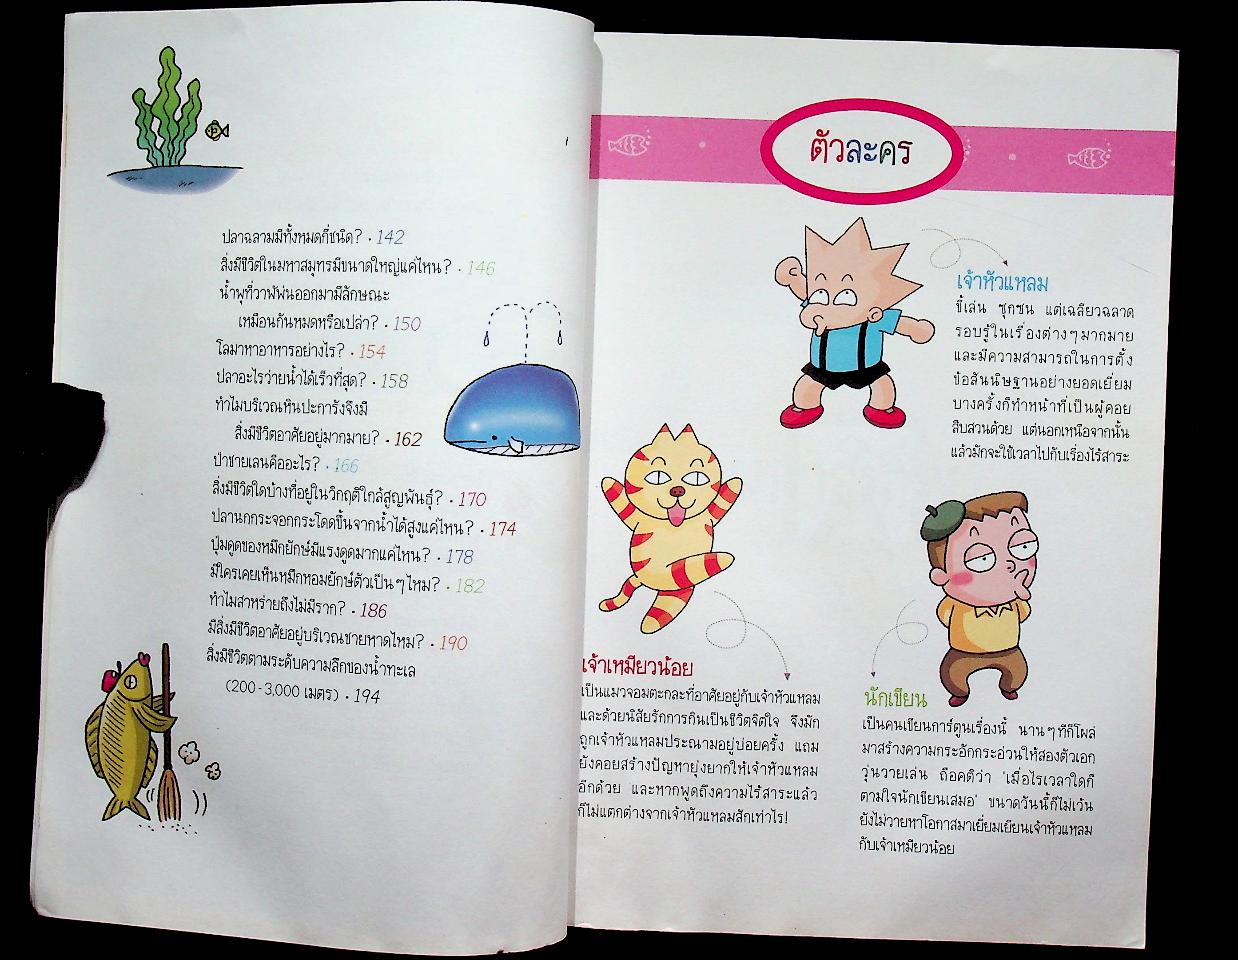 ปลาฉลามมีทั้งหมดกี่ชนิด? · 142
สิ่งมีชีวิตในมหาสมุทรมีขนาดใหญ่แค่ไหน? · 146
น้ำพุที่วาฬพ่นออกมามีลักษณะ
เหมือนกันหมดหรือเปล่า? · 150
โลมาหาอาหารอย่างไร? · 154
ปลาอะไรว่ายน้ำได้เร็วที่สุด? · 158
ทำไมบริเวณหินปะการังจึงมี
สิ่งมีชีวิตอาศัยอยู่มากมาย? · 162
ป่าชายเลนคืออะไร? · 166
สิ่งมีชีวิตใดบ้างที่อยู่ในวิกฤติใกล้สูญพันธุ์? · 170
ปลานกกระจอกกระโดดขึ้นจากน้ำได้สูงแค่ไหน? · 174
ปุ่มดูดของหมึกยักษ์มีแรงดูดมากแค่ไหน? · 178
มีใครเคยเห็นหมึกหอมยักษ์ตัวเป็นๆ ไหม? · 182
ทำไมสาหร่ายถึงไม่มีราก? · 186
มีสิ่งมีชีวิตอาศัยอยู่บริเวณชายหาดไหม? · 190
สิ่งมีชีวิตตามระดับความลึกของน้ำทะเล
(200-3,000 เมตร) · 194
ตัวละคร
เจ้าหัวแหลม
ขี้เล่น ซุกซน แต่เฉลียวฉลาด
รอบรู้ในเรื่องต่างๆ มากมาย
และมีความสามารถในการตั้ง
ข้อสันนิษฐานอย่างยอดเยี่ยม
บางครั้งก็ทำหน้าที่เป็นผู้คอย
สืบสวนด้วย แต่นอกเหนือจากนั้น
แล้วมักจะใช้เวลาไปกับเรื่องไร้สาระ
เจ้าเหมียวน้อย
เป็นแมวจอมตะกละที่อาศัยอยู่กับเจ้าหัวแหลม
และด้วยนิสัยรักการกินเป็นชีวิตจิตใจ จึงมัก
ถูกเจ้าหัวแหลมประณามอยู่บ่อยครั้ง แถม
ยังคอยสร้างปัญหายุ่งยากให้เจ้าหัวแหลม
อีกด้วย และหากพูดถึงความไร้สาระแล้ว
ก็ไม่แตกต่างจากเจ้าหัวแหลมสักเท่าไร!
นักเขียน
เป็นคนเขียนการ์ตูนเรื่องนี้ นานๆ ทีก็โผล่
มาสร้างความกระอักกระอ่วนให้สองตัวเอก
วุ่นวายเล่น ถือคติว่า 'เมื่อไรเวลาใดก็
ตามใจนักเขียนเสมอ' ขนาดวันนี้ก็ไม่เว้น
ยังไม่วายหาโอกาสมาเยี่ยมเยียนเจ้าหัวแหลม
กับเจ้าเหมียวน้อย